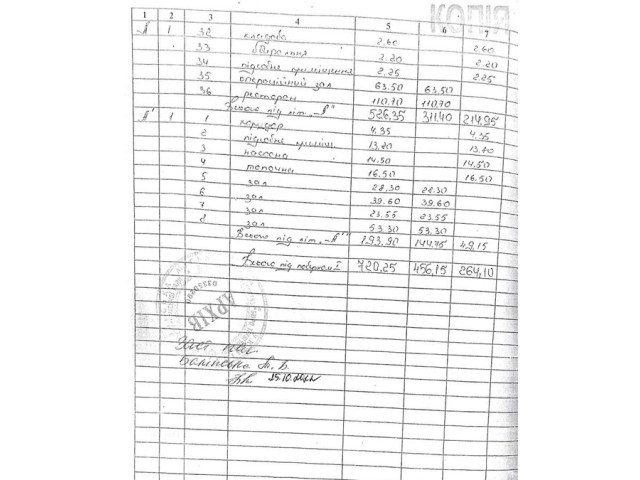 КОПІЯ
1 2 3 4 5 6 7
-А 1 32 кладова 2.60 2.60
33 вбиральня 2.20 2.20
34 підсобне приміщення 2.25 2.25
35 операційний зал 63.50 63.50
36 ресторан 110.70 110.70
Всього під літ. „А" 526,35 311.40 214,95
А' 1 1 коридор 4.35 4.35
2 підсобне приміщ. 13.20 13.20
3 насосна 14.50 14.50
4 топочна 16.50 16.50
5 зал 28.30 28.30
6 зал 39.60 39.60
7 зал 23.55 23.55
8 зал 53.30 53.30
Всього під літ. „А'" 193,90 144,75 49,15
Всього під поверхом I 720,25 456,15 264,10
АРХІВ